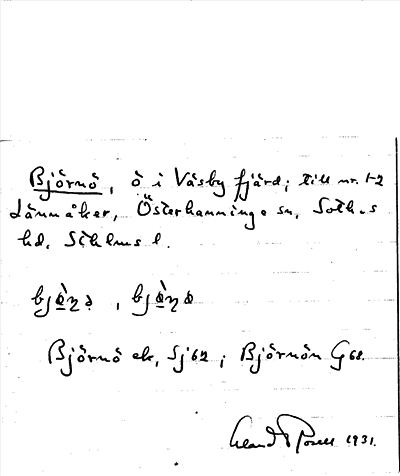 Björnö, ö i Väsby fjärd; till nr. 1-2
Lännåker, Österhanninge sn, Sotho s
hd, Sthlms l.
Björnö ek, Sj 62; Björnön G 68.
1931.